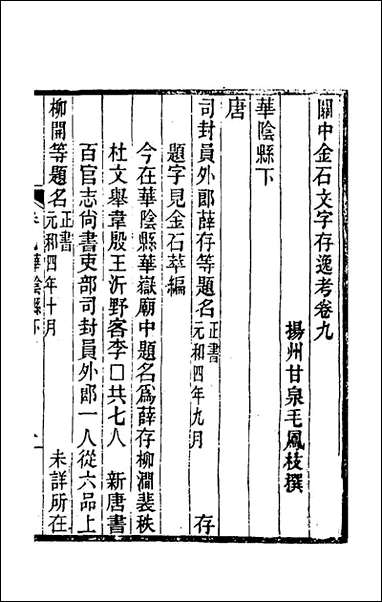 關中金石文字存逸考卷九
揚州甘泉毛鳳枝撰
華陰縣下
唐
司封員外郎薛存等題名 正書 元和四年九月 存
題字見金石萃編
今在華陰縣華嶽廟中題名爲薛存柳澗裴秩
杜文舉韋殷王沂野客李□共七人 新唐書
百官志尚書吏部司封員外郎一人從六品上
柳開等題名 正書 元和四年十月 未詳所在
卷九華陰縣下
一